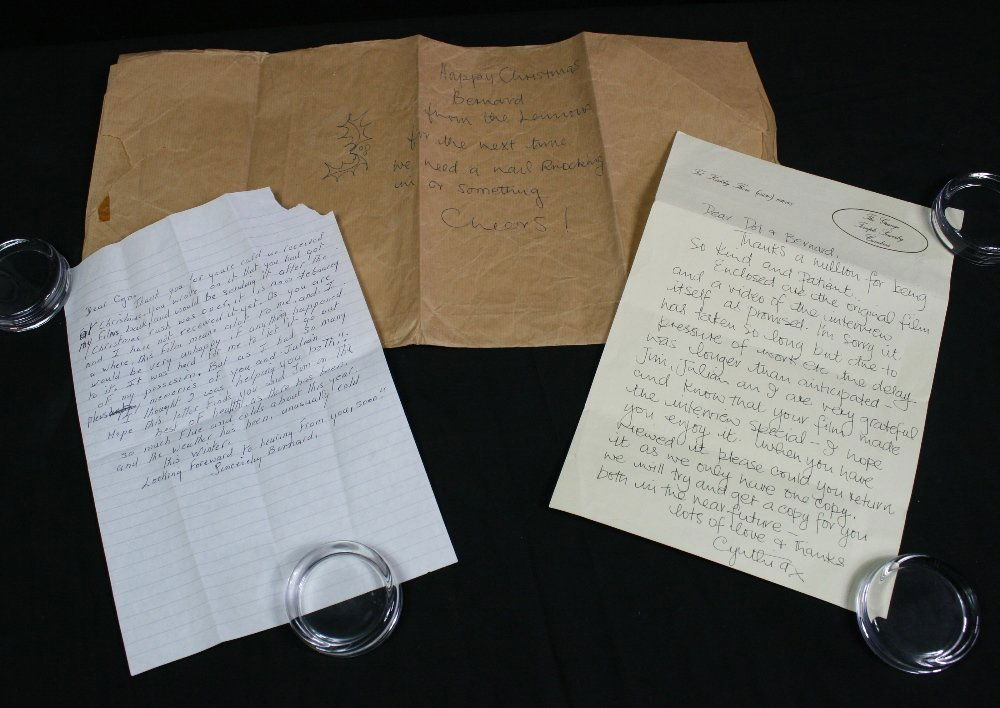 Happy Christmas
Bernard
from the Lennons
for the next time
we need a nail knocking
in or something
Cheers!
Dear Cyn, Thank you for your card we received
at Christmas, you wrote on it that you had got
my film back, and would be sending it after the
Christmas rush was over, it is now February
and I have not received it yet. As you are
aware this film means alot to me, and I
would be very unhappy if anything happened
to it. It was hard for me to let it out
of my possession. But as I had so many
memories of you and Julian
I thought I was helping you both!!
Hope this letter finds you and Jim in the
best of health, as there has been
so much Flue and colds about this year.
and the weather has been unusually cold
this winter.
Looking foreward to hearing from you, soon"
Sincerely Bernard.
Dear Dot & Bernard,
Thanks a million for being
so kind and Patient..
Enclosed are the original film
and a video of the interview
itself as promised. I'm sorry it
has taken so long but due to
pressure of work etc the delay
was longer than anticipated -
Jim, Julian an I are very grateful
and know that your film made
the interview special - I hope
you enjoy it. When you have
viewed it please could you return
it as we only have one copy.
we will try and get a copy for you
both in the near future -
lots of love & Thanks
Cynthia x